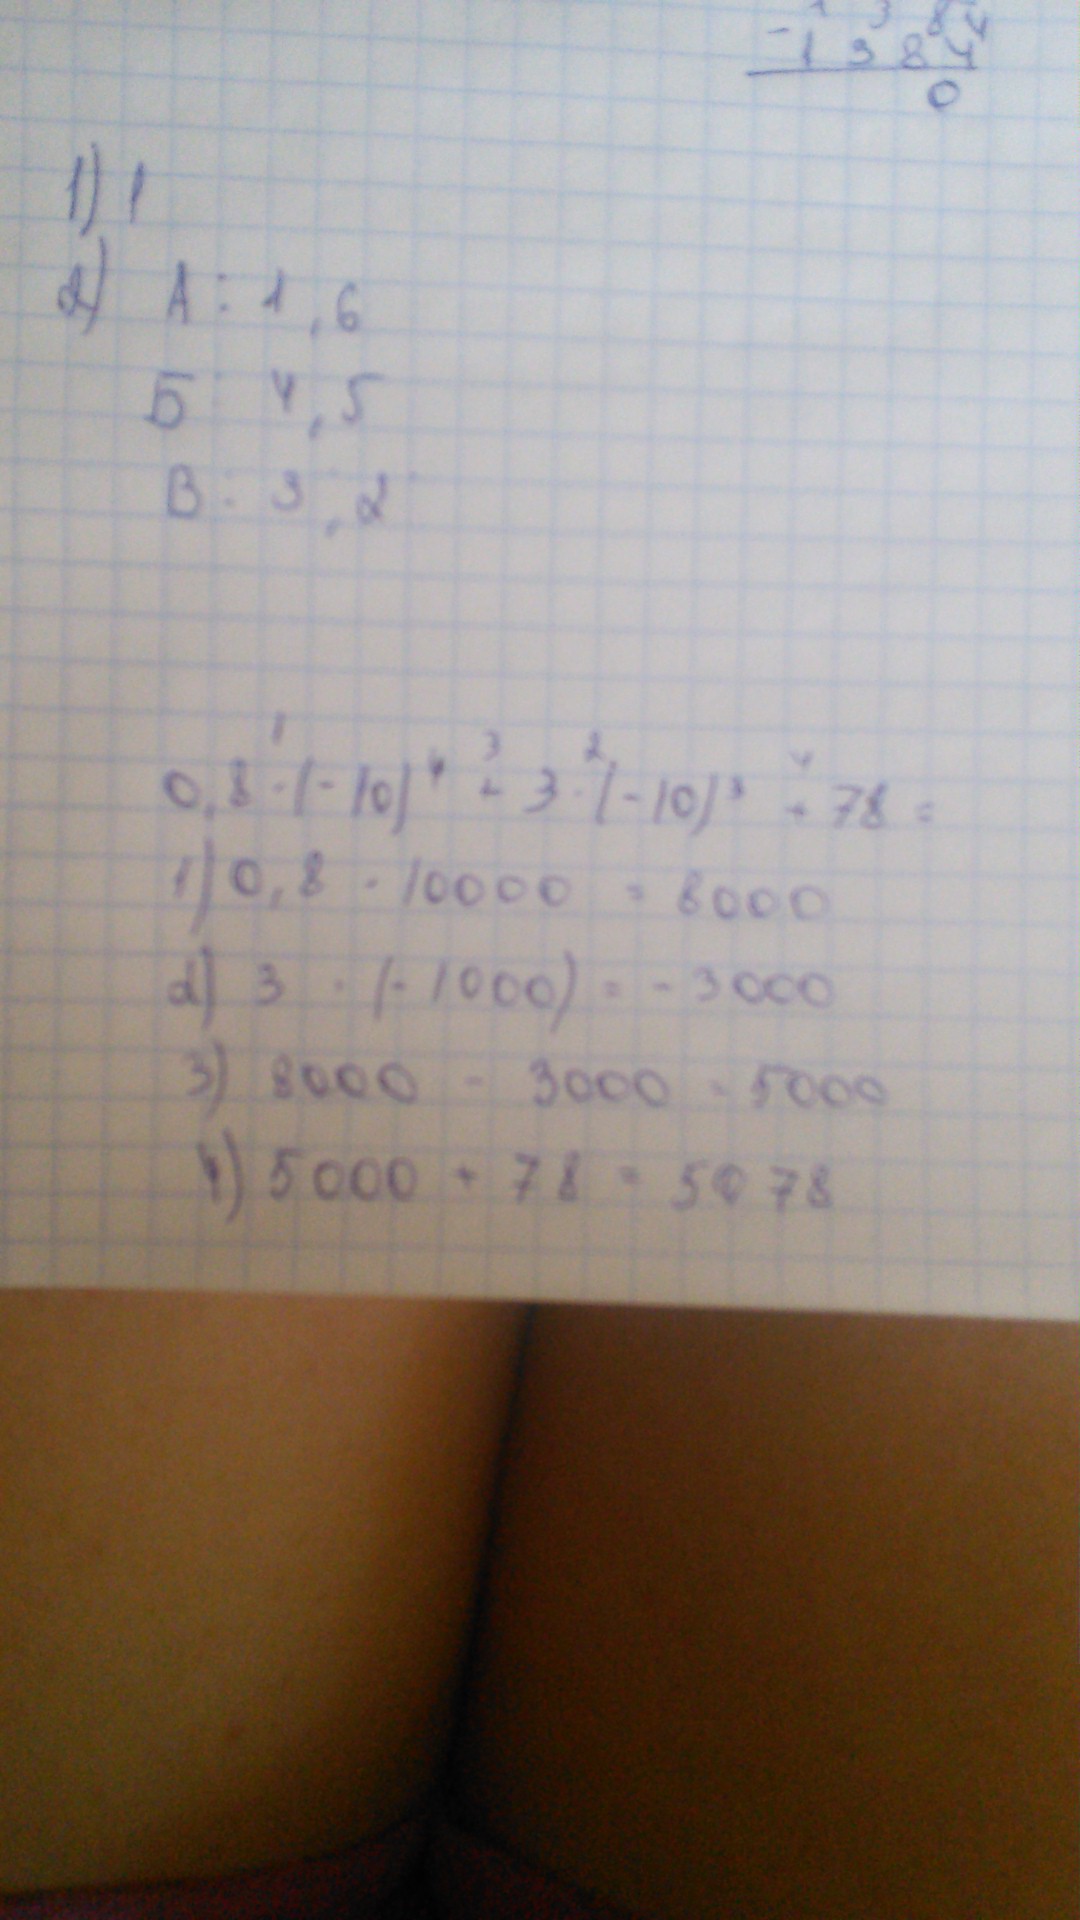 - 1 3 8 4
0
1) 1
2) А : 1 , 6
Б : 4 , 5
В : 3 , 2
1 3 2 4
0,8 · (-10)⁴ + 3 · (-10)³ + 78 =
1) 0,8 · 10000 = 8000
2) 3 · (-1000) = - 3000
3) 8000 - 3000 = 5000
4) 5000 + 78 = 5078